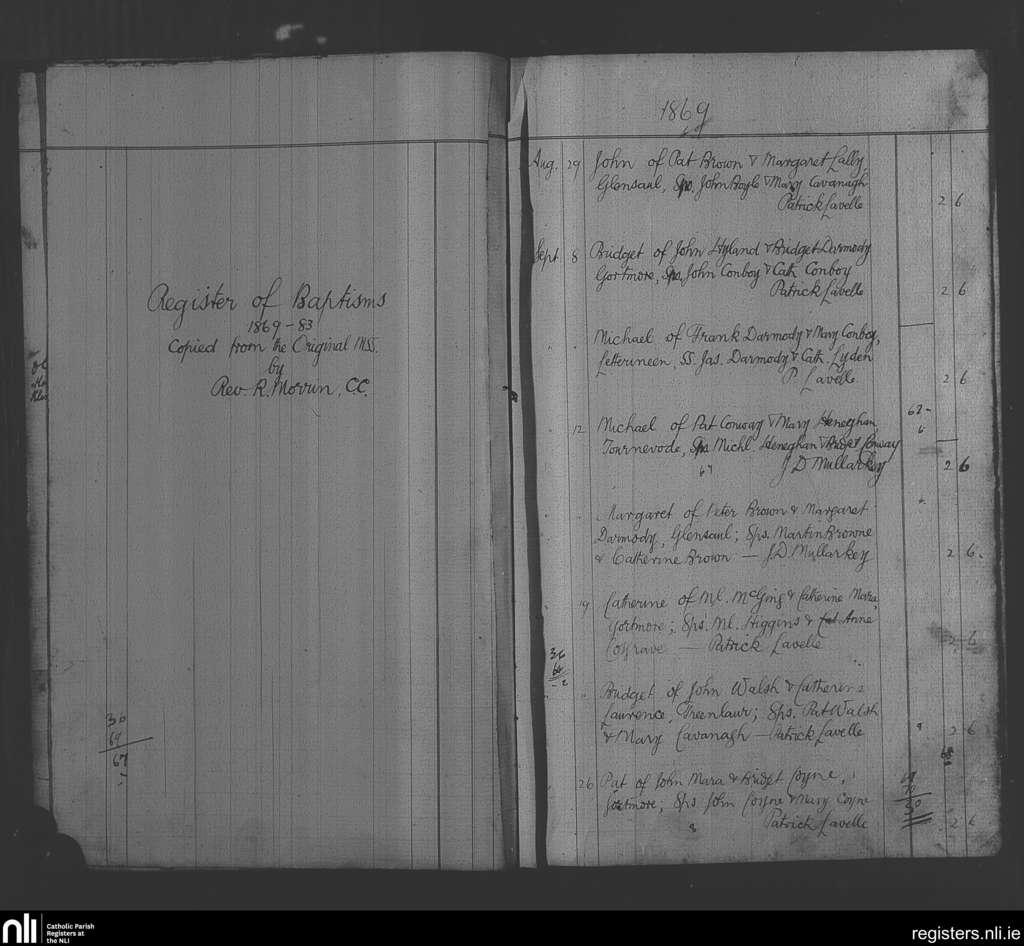 Register of Baptisms
1869-83
Copied from the Original MSS.
by
Rev. R. Morrin, C.C.
36
69
67
1869
Aug. 29 John of Pat Brown & Margaret Lally
Glensaul, Sps. John Boyle & Mary Cavanagh
Patrick Lavelle
2 6
Sept 8 Bridget of John Hyland & Bridget Darmody
Gortmore, Sps. John Conboy & Cath Conboy
Patrick Lavelle
2 6
Michael of Frank Darmody & Mary Conboy,
Letterineen, SS. Jas. Darmody & Cath. Lyden
P. Lavelle
2 6
12 Michael of Pat Conway & Mary Heneghan,
Tournevode, Sps Michl. Heneghan & Bridget Conway
J D Mullarkey
2 6
Margaret of Peter Brown & Margaret
Darmody, Glensaul; Sps. Martin Browne
& Catherine Brown — J.D. Mullarkey
2 6.
19 Catherine of Ml. McGing & Catherine Mara,
Gortmore; Sps. Ml. Higgins & Anne
Cosgrave — Patrick Lavelle
2 6
Bridget of John Walsh & Catherine
Laurence, Greenlaur; Sps. Pat Walsh
& Mary Cavanagh — Patrick Lavelle
2 6
26 Pat of John Mara & Bridget Coyne,
Gortmore; Sps John Coyne & Mary Coyne
Patrick Lavelle
2 6
nli
Catholic Parish
Registers at
the NLI
registers.nli.ie